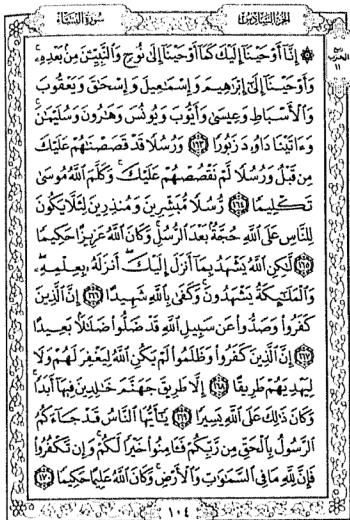 الجزء السادس سورة النساء
ربع
الحزب
١١
۞ إِنَّا أَوْحَيْنَا إِلَيْكَ كَمَا أَوْحَيْنَا إِلَىٰ نُوحٍ وَالنَّبِيِّينَ مِنْ بَعْدِهِ ۚ
وَأَوْحَيْنَا إِلَىٰ إِبْرَاهِيمَ وَإِسْمَاعِيلَ وَإِسْحَاقَ وَيَعْقُوبَ
وَالْأَسْبَاطِ وَعِيسَىٰ وَأَيُّوبَ وَيُونُسَ وَهَارُونَ وَسُلَيْمَانَ ۚ
وَءَاتَيْنَا دَاوُودَ زَبُورًا ١٦٣ وَرُسُلًا قَدْ قَصَصْنَاهُمْ عَلَيْكَ
مِن قَبْلُ وَرُسُلًا لَّمْ نَقْصُصْهُمْ عَلَيْكَ ۚ وَكَلَّمَ اللَّهُ مُوسَىٰ
تَكْلِيمًا ١٦٤ رُّسُلًا مُّبَشِّرِينَ وَمُنذِرِينَ لِئَلَّا يَكُونَ
لِلنَّاسِ عَلَى اللَّهِ حُجَّةٌ بَعْدَ الرُّسُلِ ۚ وَكَانَ اللَّهُ عَزِيزًا حَكِيمًا
١٦٥ لَّٰكِنِ اللَّهُ يَشْهَدُ بِمَا أَنزَلَ إِلَيْكَ ۖ أَنزَلَهُ بِعِلْمِهِ ۖ
وَالْمَلَائِكَةُ يَشْهَدُونَ ۚ وَكَفَىٰ بِاللَّهِ شَهِيدًا ١٦٦ إِنَّ الَّذِينَ
كَفَرُوا وَصَدُّوا عَن سَبِيلِ اللَّهِ قَدْ ضَلُّوا ضَلَالًا بَعِيدًا
١٦٧ إِنَّ الَّذِينَ كَفَرُوا وَظَلَمُوا لَمْ يَكُنِ اللَّهُ لِيَغْفِرَ لَهُمْ وَلَا
لِيَهْدِيَهُمْ طَرِيقًا ١٦٨ إِلَّا طَرِيقَ جَهَنَّمَ خَالِدِينَ فِيهَا أَبَدًا ۚ
وَكَانَ ذَٰلِكَ عَلَى اللَّهِ يَسِيرًا ١٦٩ يَا أَيُّهَا النَّاسُ قَدْ جَاءَكُمُ
الرَّسُولُ بِالْحَقِّ مِن رَّبِّكُمْ فَـَٔامِنُوا خَيْرًا لَّكُمْ ۚ وَإِن تَكْفُرُوا
فَإِنَّ لِلَّهِ مَا فِي السَّمَاوَاتِ وَالْأَرْضِ ۚ وَكَانَ اللَّهُ عَلِيمًا حَكِيمًا ١٧٠
١٠٤